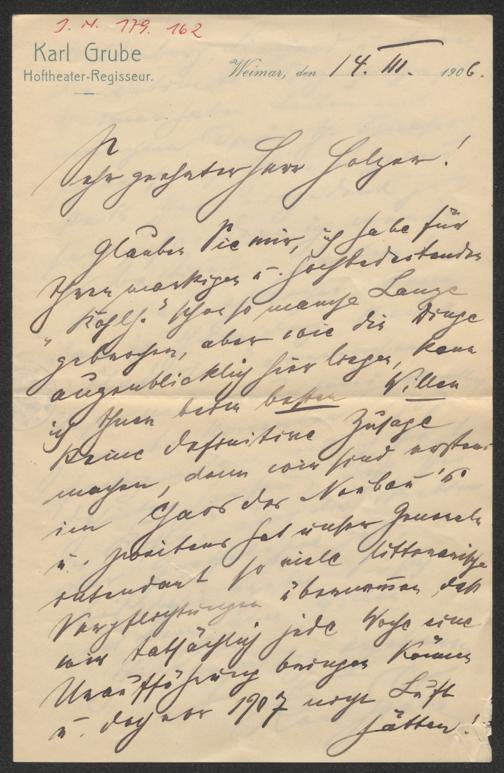 J. N. 179.162
Karl Grube
Hoftheater-Regisseur.
Weimar, den 14. III. 1906.
Sehr geehrter Herr Holzer!
Glauben Sie mir, ich habe für
Ihren markigen u. hochbedeutenden
"Kohlh." schon so manche Lanze
gebrochen, aber wie die Dinge
augenblicklich hier liegen, kann
ich Ihnen beim besten Willen
keine definitive Zusage
machen, denn wir sind erstens
im Chaos des Neubau's
u. zweitens hat unser General-
intendant so viele litterarische
Verpflichtungen übernommen daß
wir tatsächlich jede Woche eine
Uraufführung bringen können
u. doch vor 1907 nicht Luft
hätten!